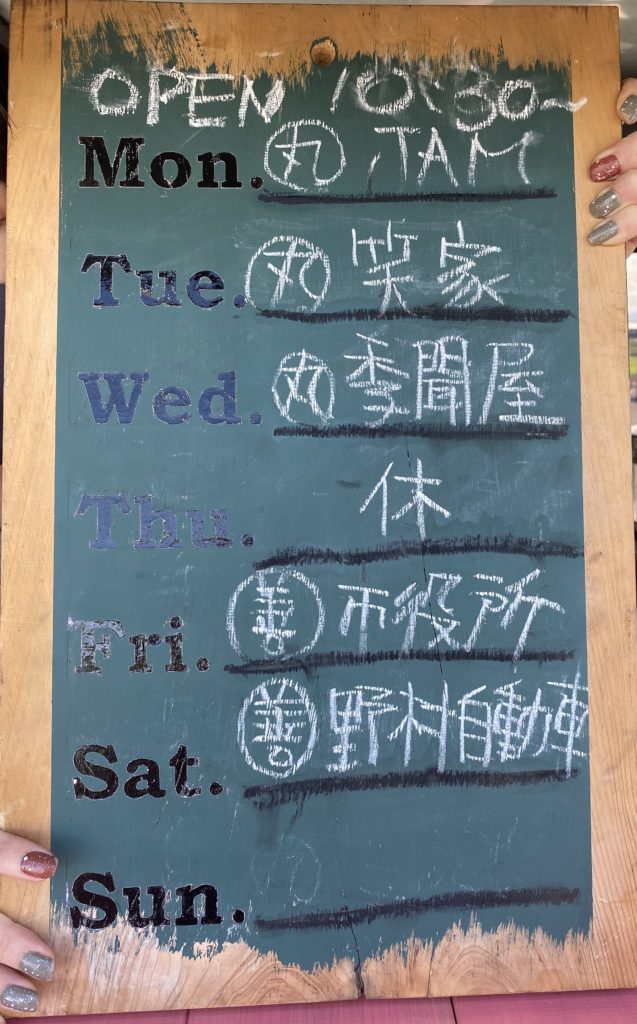 OPEN 10:30~
Mon. 丸 JAM
Tue. 丸 笑家
Wed. 丸 季聞屋
Thu. 休
Fri. 善 市役所
Sat. 善 野村自動車
Sun.